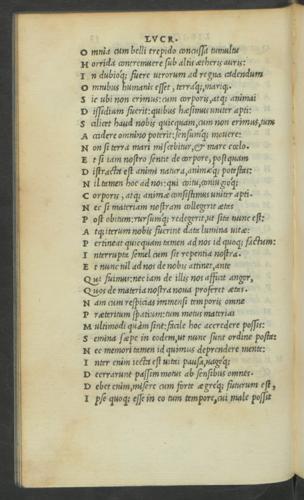 LVCR.
O mnia cum belli trepido concussa tumultu
H orrida contremuere sub altis ætheris auris:
I n dubioq; fuere utrorum ad regna cadendum
O mnibus humanis esset, terraq;, mariq;.
S ic ubi non erimus: cum corporis, atq; animai
D issidium fuerit: quibus hæsimus uniter apti:
S cilicet haud nobis quicquam, cum non erimus, tum
A ccidere omnino poterit: sensumq; mouere:
N on si terra mari miscebitur, & mare cœlo.
E t si iam nostro sentit de corpore, postquam
D istracta est animi natura, animæq; potestas:
N il tamen hoc ad nos: qui cœtu, coniugioq;
C orporis, atq; animæ consistimus uniter apti.
N ec si materiam nostram collegerit ætas
P ost obitum: rursumq; redegerit, ut sita nunc est:
A tq; iterum nobis fuerint data lumina uitæ:
P ertineat quicquam tamen ad nos id quoq; factum:
I nterrupta semel cum sit repentia nostra.
E t nunc nil ad nos de nobis attinet, ante
Q ui fuimus: nec iam de illis nos afficit angor,
Q uos de materia nostra noua proferet ætas.
N am cum respicias immensi temporis omne
P ræteritum spatium: tum motus materiai
M ultimodi quàm sint: facile hoc accredere possis:
S emina sæpe in eodem, ut nunc sunt ordine posta:
N ec memori tamen id quimus deprendere mente:
I nter enim iecta est uitai pausa, uageq;
D eerrarunt passim motus ab sensibus omnes.
D ebet enim, misere cum forte ægreq; futurum est,
I pse quoq; esse in eo tum tempore, cui male possit